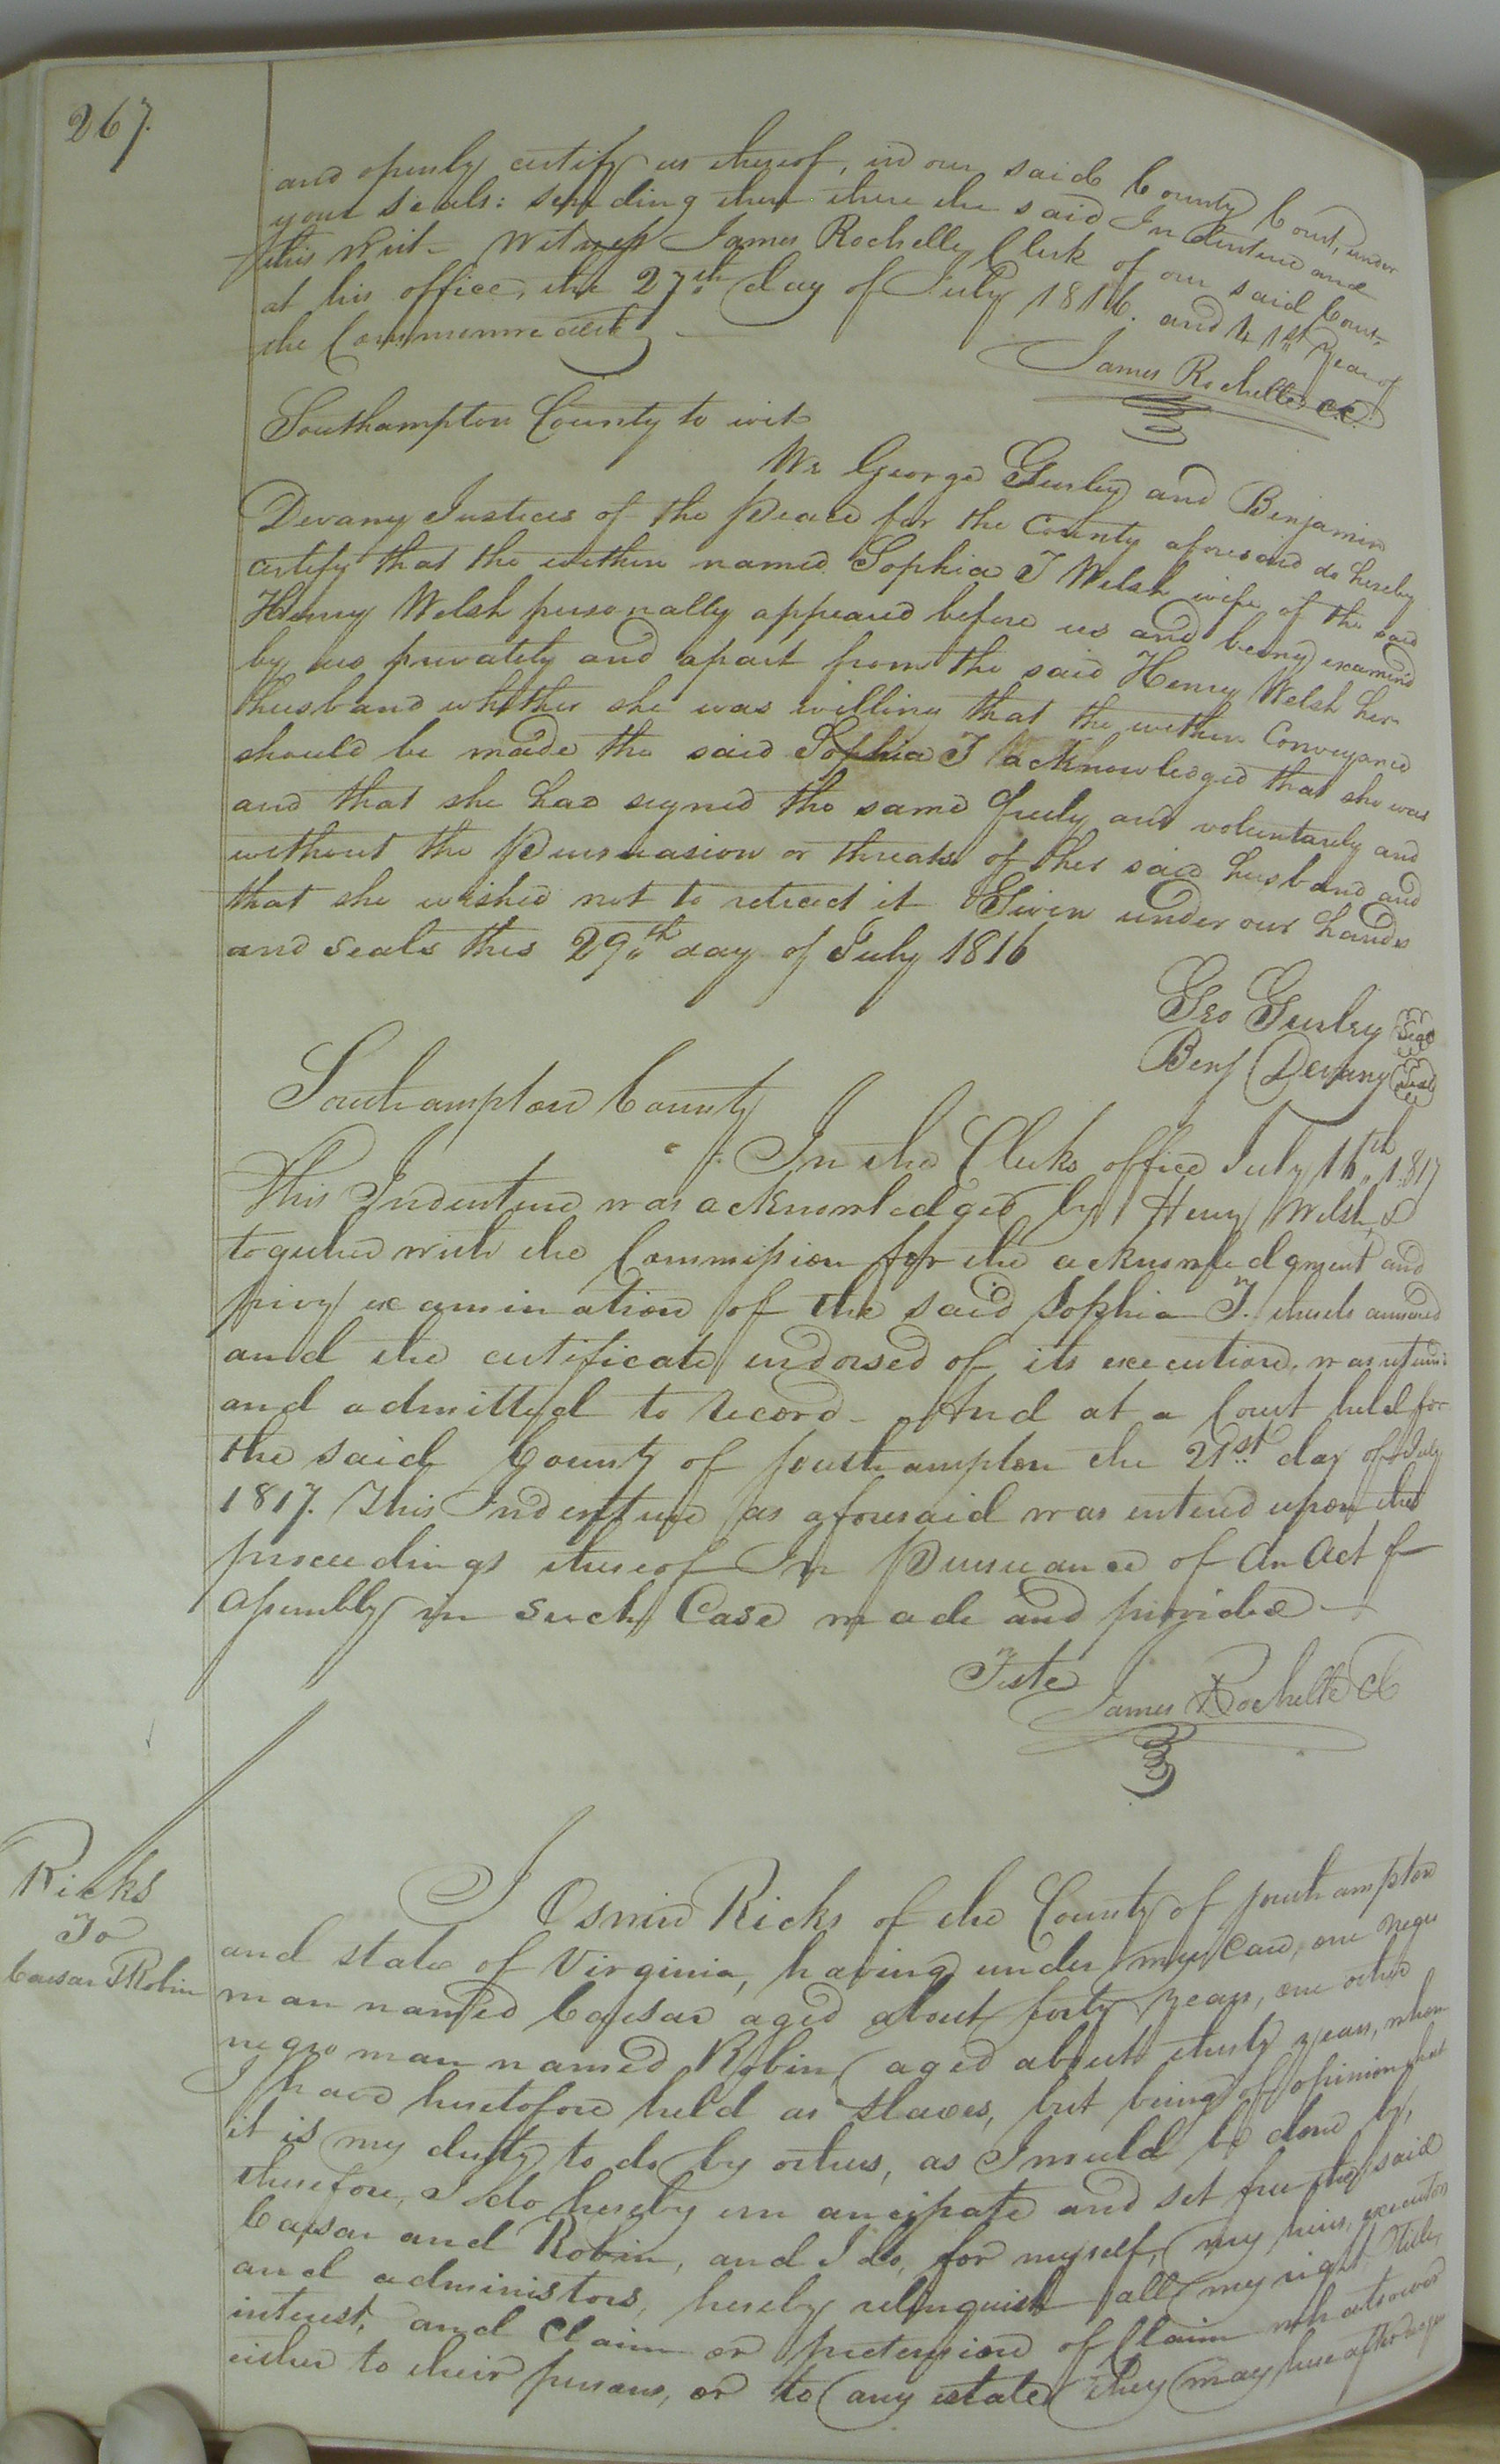 267.
and openly certify us thereof, in our said County Court, under
your seals: sending then there the said Indenture and
this writ - Witness James Rochelle, Clerk of our said Court,
at his office, the 27th day of July 1816. and 41st year of
the Commonwealth -
James Rochelle CC.
Southampton County to wit
We George Gurley and Benjamin
Devany Justices of the Peace for the County aforesaid do hereby
certify that the within named Sophia T Welsh wife of the said
Henry Welsh personally appeared before us and being examind
by us privately and apart from the said Henry Welsh her
husband whether she was willing that the within Conveyance
should be made the said Sophia T acknowledged that she was
and that she had signed the same freely and voluntarily and
without the Persuasion or threats of her said husband and
that she wished not to retract it Given under our hands
and seals this 29th day of July 1816
Geo Gurley Seal
Benj Devany Seal
Southampton County
In the Clerks office July 16th 1817
This Indenture was acknowledged by Henry Welsh &
together with the Commission for the acknowledgment and
privy examination of the said Sophia T. thereto annexed
and the certificate endorsed of its execution, was returned
and admitted to record - And at a Court held for
the said County of Southampton the 21st day of July
1817. This Indenture as aforesaid was entered upon the
proceedings thereof In Pursuance of An Act of
Assembly in such Case made and provided -
Teste
James Rochelle CC
Ricks
To
Caesar & Robin
I Osmin Ricks of the County of Southampton
and state of Virginia, having under my Care, one negro
man named Caesar aged about forty years, one other
negro man named Robin, aged about thirty years, whom
I have heretofore held as slaves, but being of opinion that
it is my duty to do by others, as I would be done by,
therefore, I do hereby emancipate and set free the said
Caesar and Robin, and I do, for myself, my heirs, executors
and administors, hereby relinquish all my right, title,
interest, and Claim or pretension of Claim whatsoever
either to their persons, or to any estate they may hereafter acquire